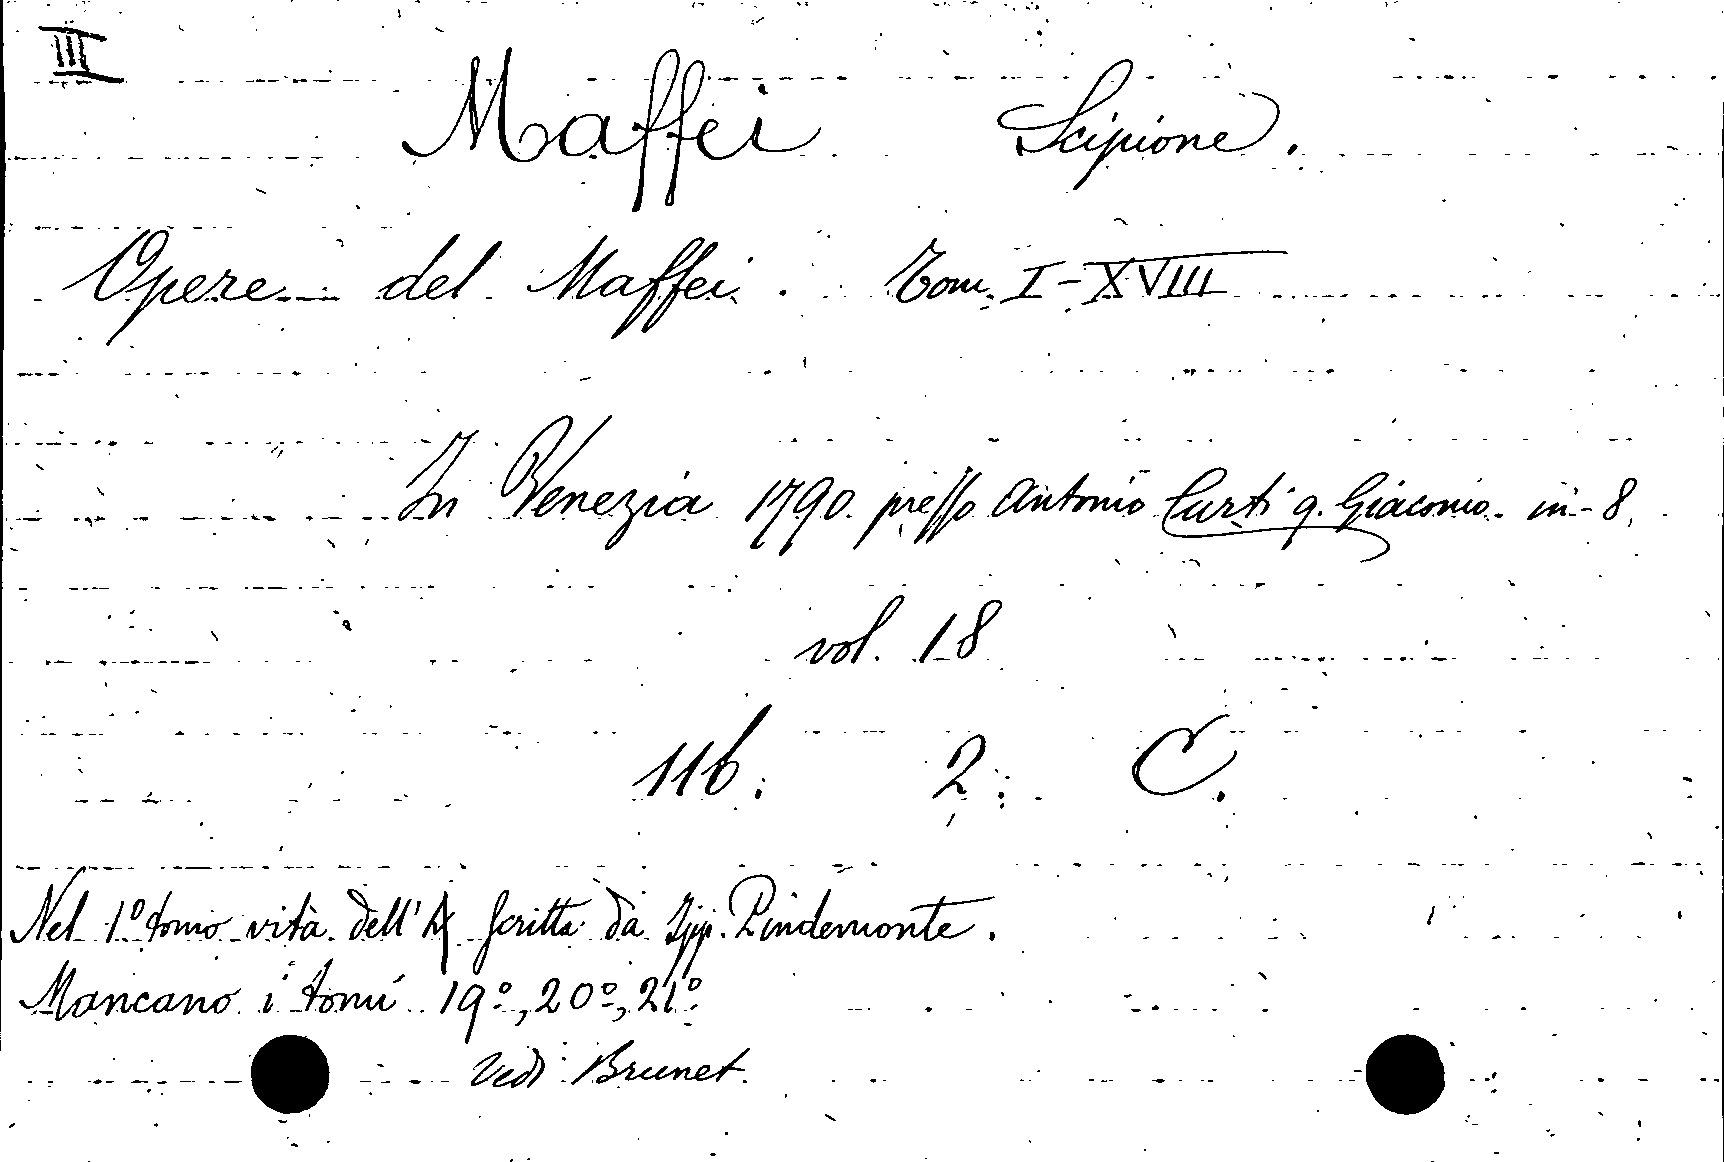 III
Maffei Scipione.
Opere del Maffei. Tom. I-XVIII
In Venezia 1790. presso Antonio Curti q. Giacomo. in-8.
vol. 18
116. 2. C.
Nel 1º tomo vita dell'A scritta da Ipp. Pindemonte.
Mancano i tomi 19º, 20º, 21º
Vedi Brunet.